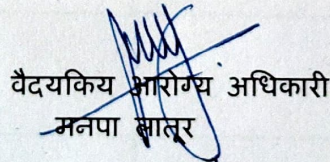 वैदयकिय आरोग्य अधिकारी
मनपा लातूर